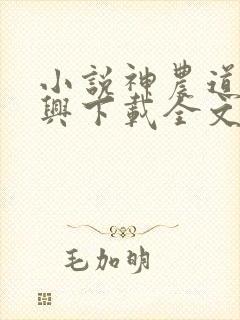 小説神農道
興下載全文
毛加明